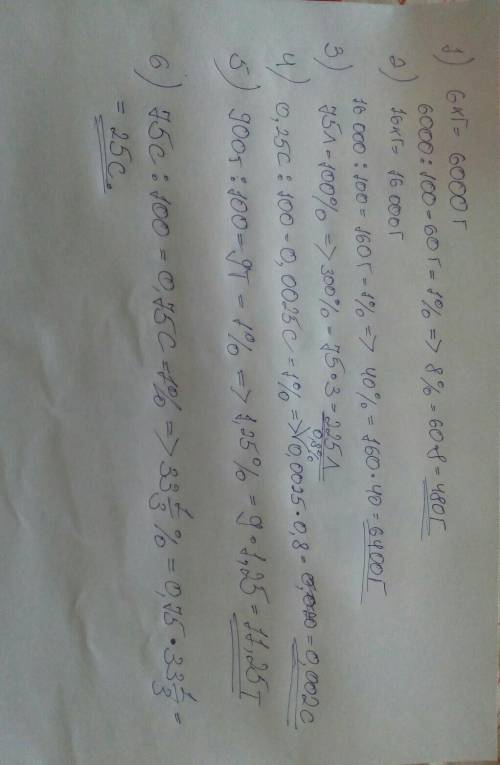 1) 6кг = 6000г
6000 : 100 = 60г = 1% => 8% = 60·8 = 480г
2) 16кг = 16 000г
16 000 : 100 = 160г = 1% => 40% = 160·40 = 6400г
3) 75л = 100% => 300% = 75·3 = 225л
4) 0,25с : 100 = 0,0025с = 1% => 0,8% 0,0025·0,8 = = 0,002с
5) 900т : 100 = 9т = 1% => 1,25% = 9·1,25 = 11,25т
6) 75с : 100 = 0,75с = 1% => 33 1/3 % = 0,75·33 1/3 =
= 25с.